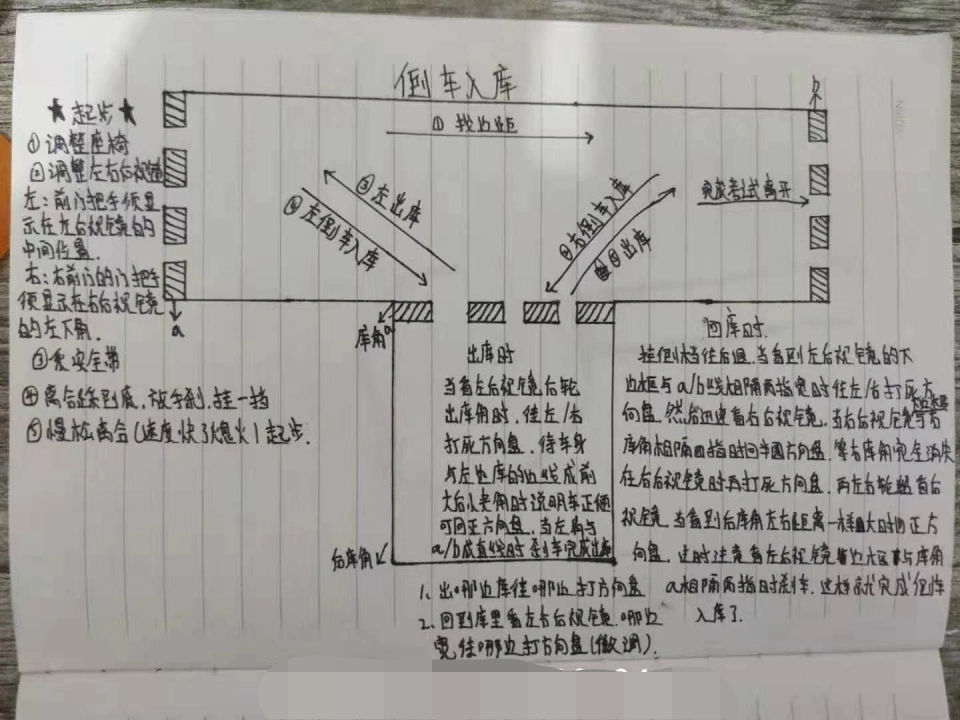 倒车入库
★起步★
①调整座椅
②调整左右后视镜
左：前门把手须显
示在左后视镜的
中间位置.
右：右前门的门把手
须显示在右后视镜
的左下角.
③系安全带
④离合踩到底，放手刹，挂一挡
⑤慢松离合(速度快了熄火)起步.
①找边距
③左出库
④左倒车入库
②右倒车入库
⑤出库
完成考试离开
b
a
库角a
后库角
出库时
当看左后视镜后轮
出库角时，往左/右
打死方向盘，待车身
与左边库的边线成前
大后小夹角时说明车正便
可回正方向盘，当左肩与
a/b成直线时刹车完成出库
1、出哪边库往哪边打方向盘
2、回到库里看左右后视镜，哪边
宽往哪边打方向盘(微调).
回库时
挂倒档往后退，当看到左后视镜的下
边框与a/b线相隔两指宽时往左/右打死方
向盘，然后迅速看右后视镜，当右后视镜与右
库角相隔四指时回半圈方向盘，等右库角完全消失
在右后视镜时再打死方向盘，再左右轮番看后
视镜，当看到后库角左右距离一样大时回正方
向盘，这时注意看左后视镜边框与库角
a相隔两指时刹车，这样就完成倒车
入库了.